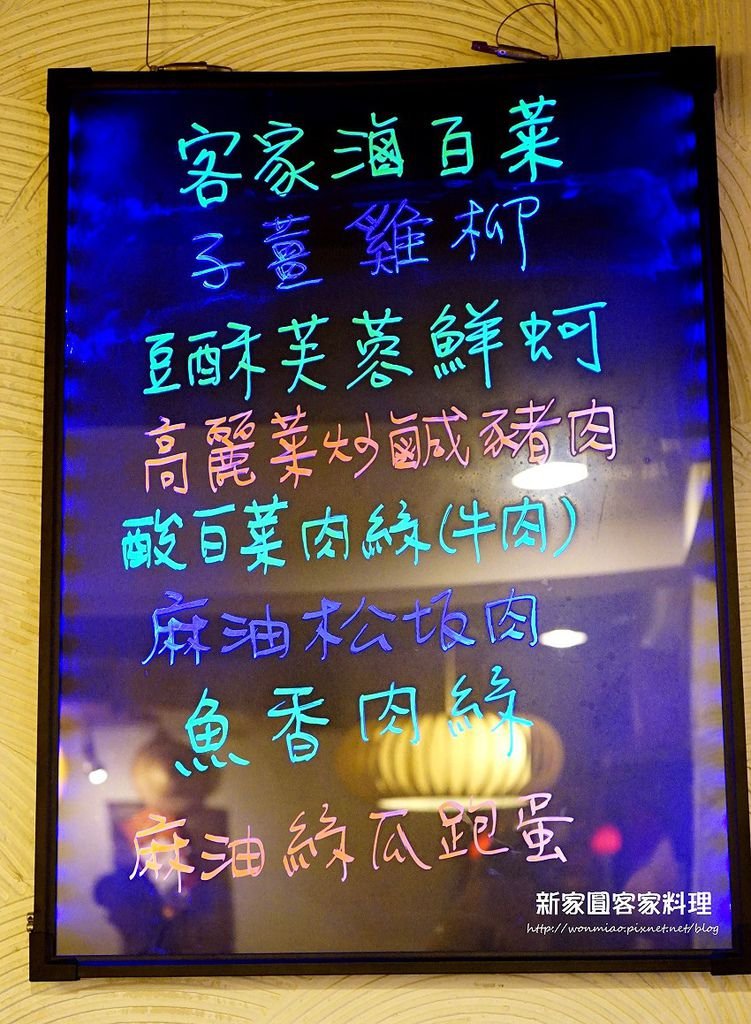 客家滷白菜
子薑雞柳
豆酥芙蓉鮮蚵
高麗菜炒鹹豬肉
酸白菜肉絲(牛肉)
麻油松坂肉
魚香肉絲
麻油絲瓜跑蛋
新家圓客家料理
http://wonmiao.pixnet.net/blog